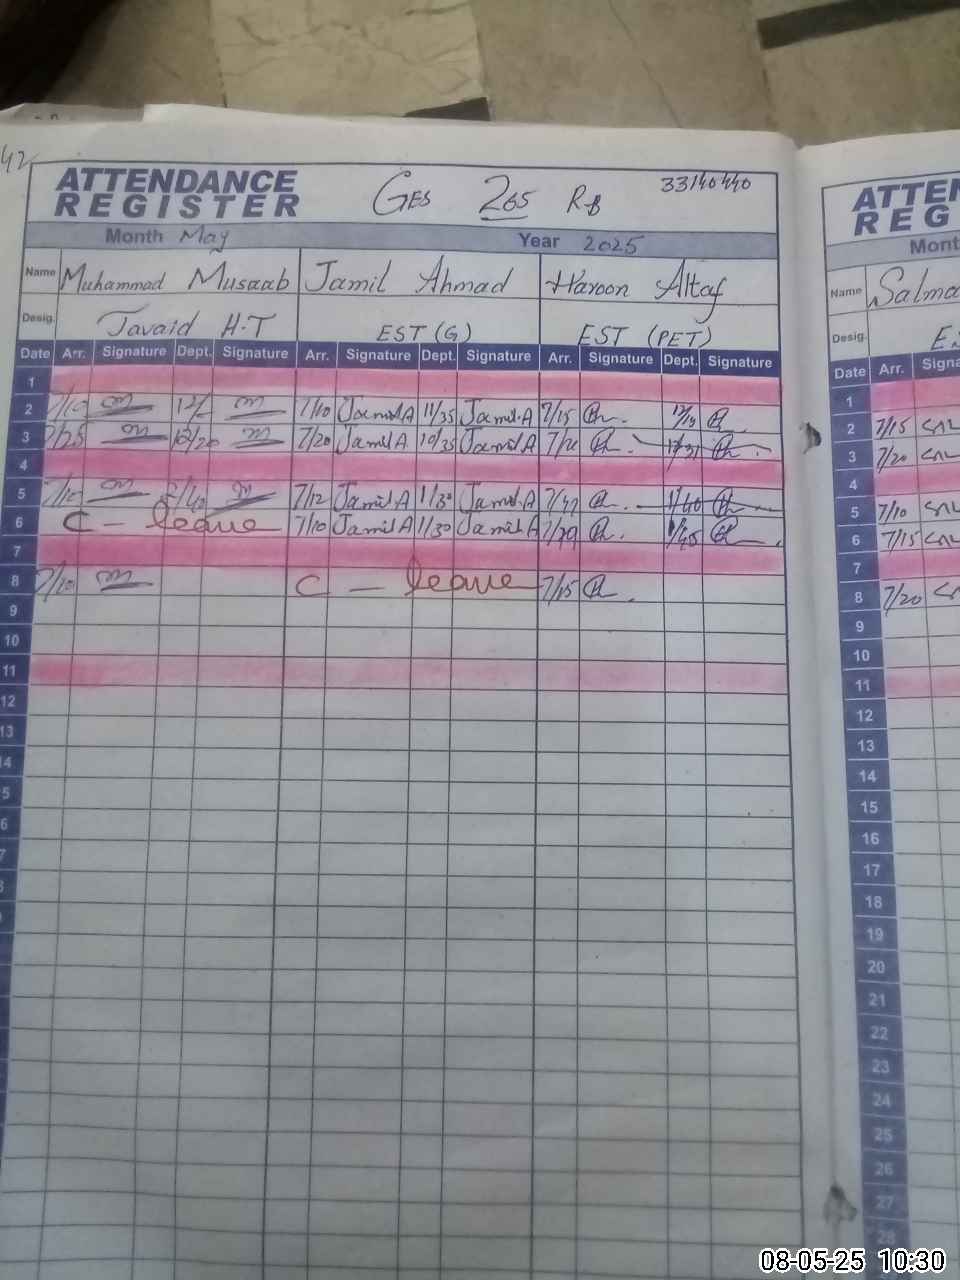 42
ATTENDANCE REGISTER GES 265 RB 33140440
Month May Year 2025
Name Muhammad Musaab Jamil Ahmad Haroon Altaf
Desig. Javaid H.T EST (G) EST (PET)
Date Arr. Signature Dept. Signature Arr. Signature Dept. Signature Arr. Signature Dept. Signature
1
2 7/10 7/10 Jamil A 11/35 Jamil.A 7/15
3 7/25 12/20 7/20 Jamil A 10/35 Jamil A
4
5 7/10 7/12 Jamil A 1/30 Jamil A 1/40
6 C - leave 7/10 Jamil A 1/30 Jamil A 1/45
7
8 7/10 C - leave 7/15
9
10
11
12
13
14
5
6
7
8
ATTEN
REG
Mont
Name Salma
Desig.
Date Arr. Signa
1
2 7/15
3 7/20
4
5 7/10
6 7/15
7
8 7/20
9
10
11
12
13
14
15
16
17
18
19
20
21
22
23
24
25
26
27
28
08-05-25 10:30